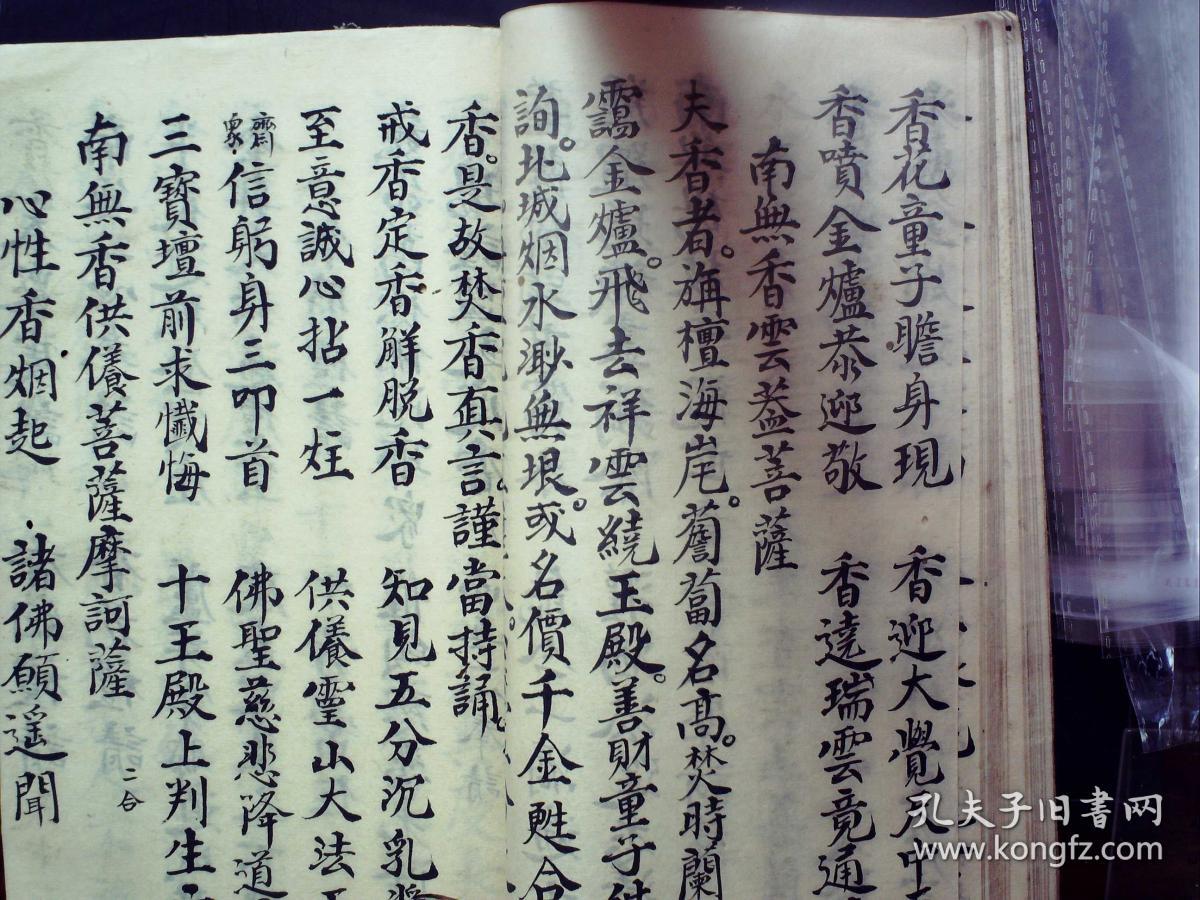 香花童子瞻身現 香迎大覺天中
香噴金爐恭迎敬 香遶瑞雲竟通
南無香雲蓋菩薩
夫香者。旃檀海岸。薝蔔名高。焚時蘭
靄金爐。飛去祥雲繞玉殿。善財童子
詢。北城烟水渺無垠。或名價千金甦合
香。是故焚香真言。謹當持誦。
戒香定香解脱香 知見五分沉乳
至意誠心拈一炷 供養靈山大法
齋衆信躬身三叩首 佛聖慈悲降道
三寳壇前求懺悔 十王殿上判生
南無香供養菩薩摩訶薩 二合
心性香烟起 諸佛願遥聞
孔夫子旧书网
www.kongfz.com